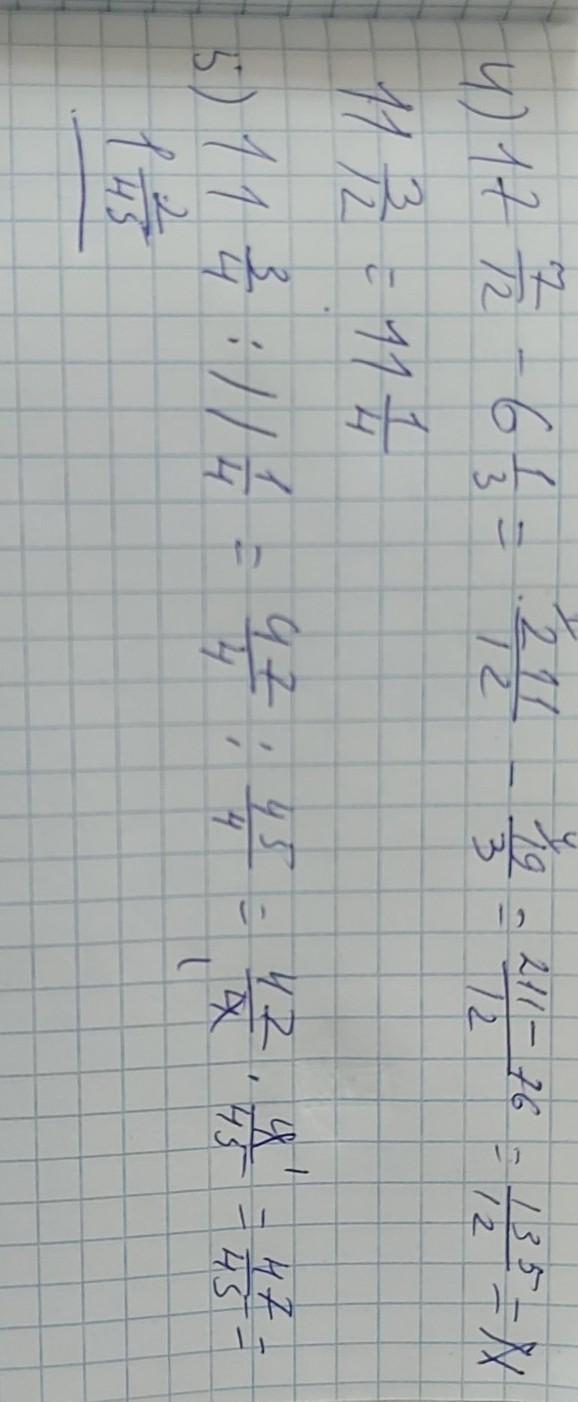 4) 17 7/12 - 6 1/3 = 211/12 - 19/3 = 211-76/12 = 135/12 =
11 3/12 = 11 1/4
5) 11 3/4 : 11 1/4 = 47/4 : 45/4 = 47/4 · 4/45 = 47/45 =
1 2/45